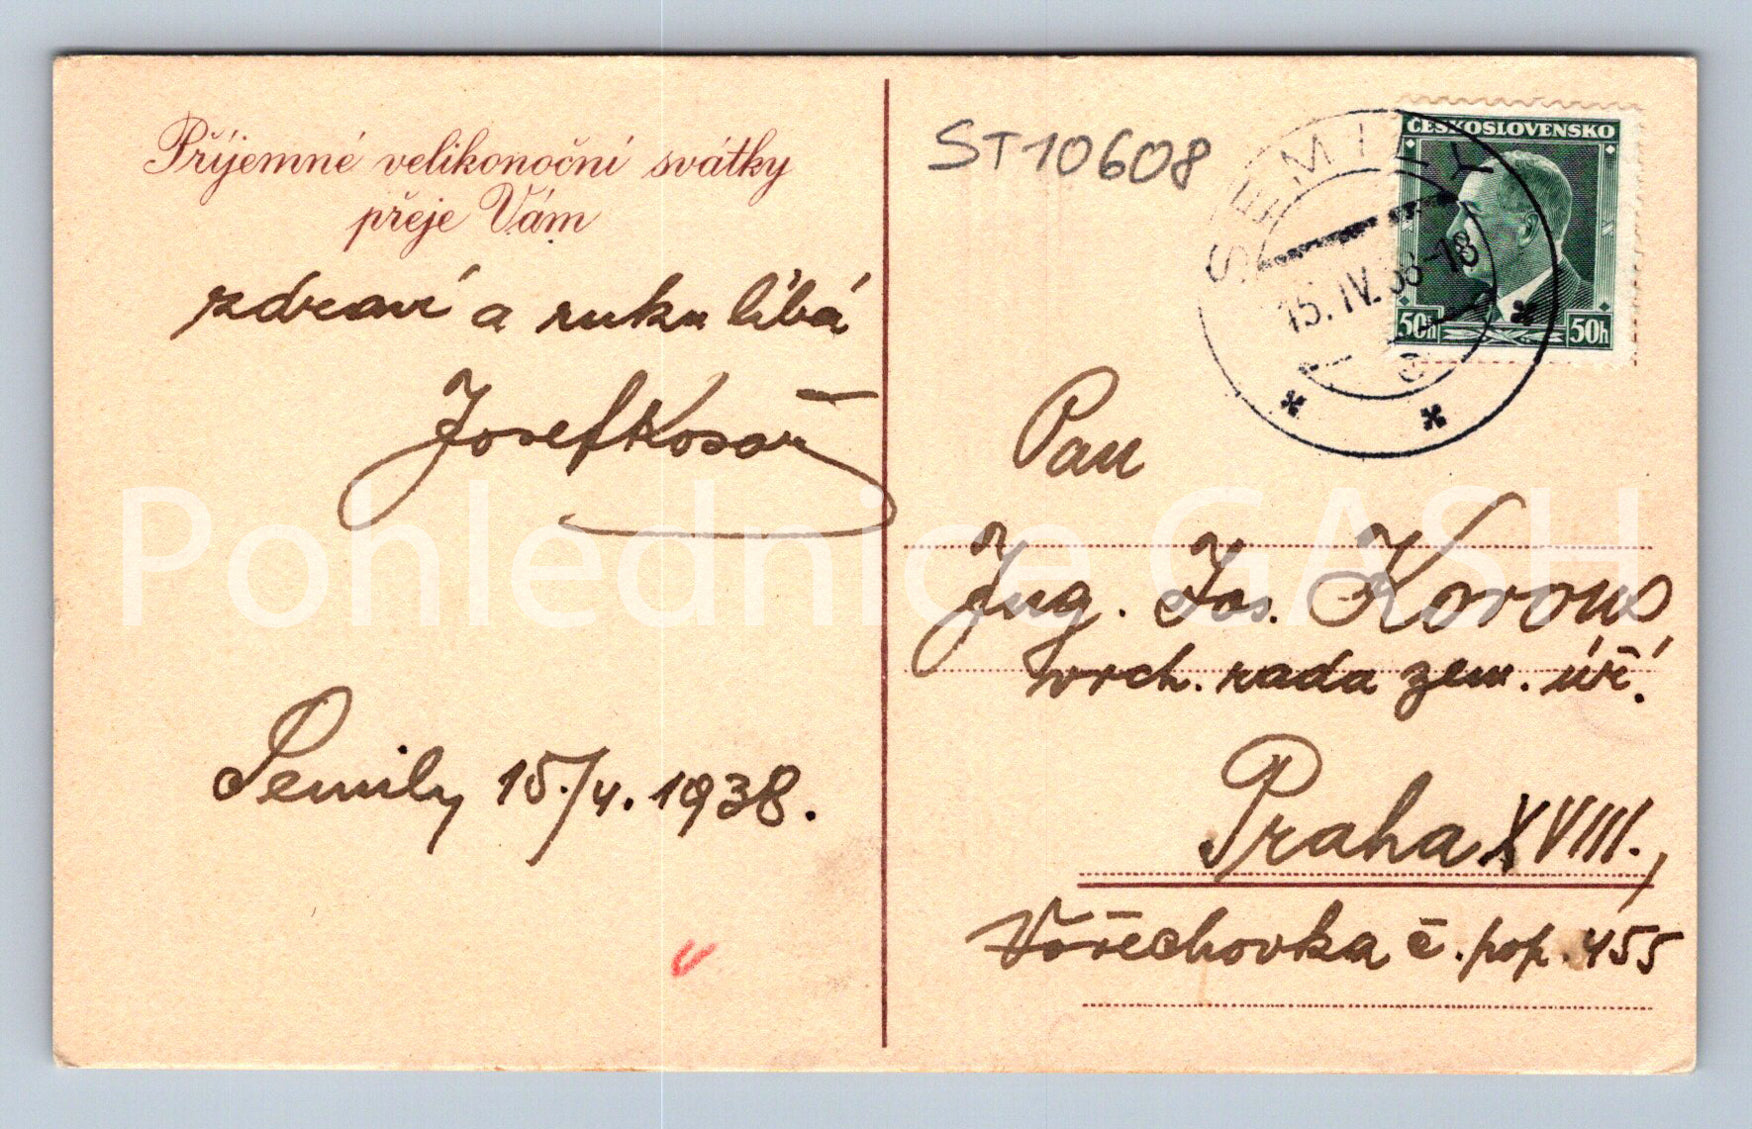 Příjemné velikonoční svátky
přeje Vám
zdraví a ruku líbá
Josef Kosař
Semily 15./4. 1938.
ST10608
SEMILY
15.IV.38-18
ČESKOSLOVENSKO
50h 50h
Pan
Ing. Jos. Korous
vrch. rada zem. úř.
Praha XVIII.,
Vořechovka č. pop. 455
Pohlednice GASH